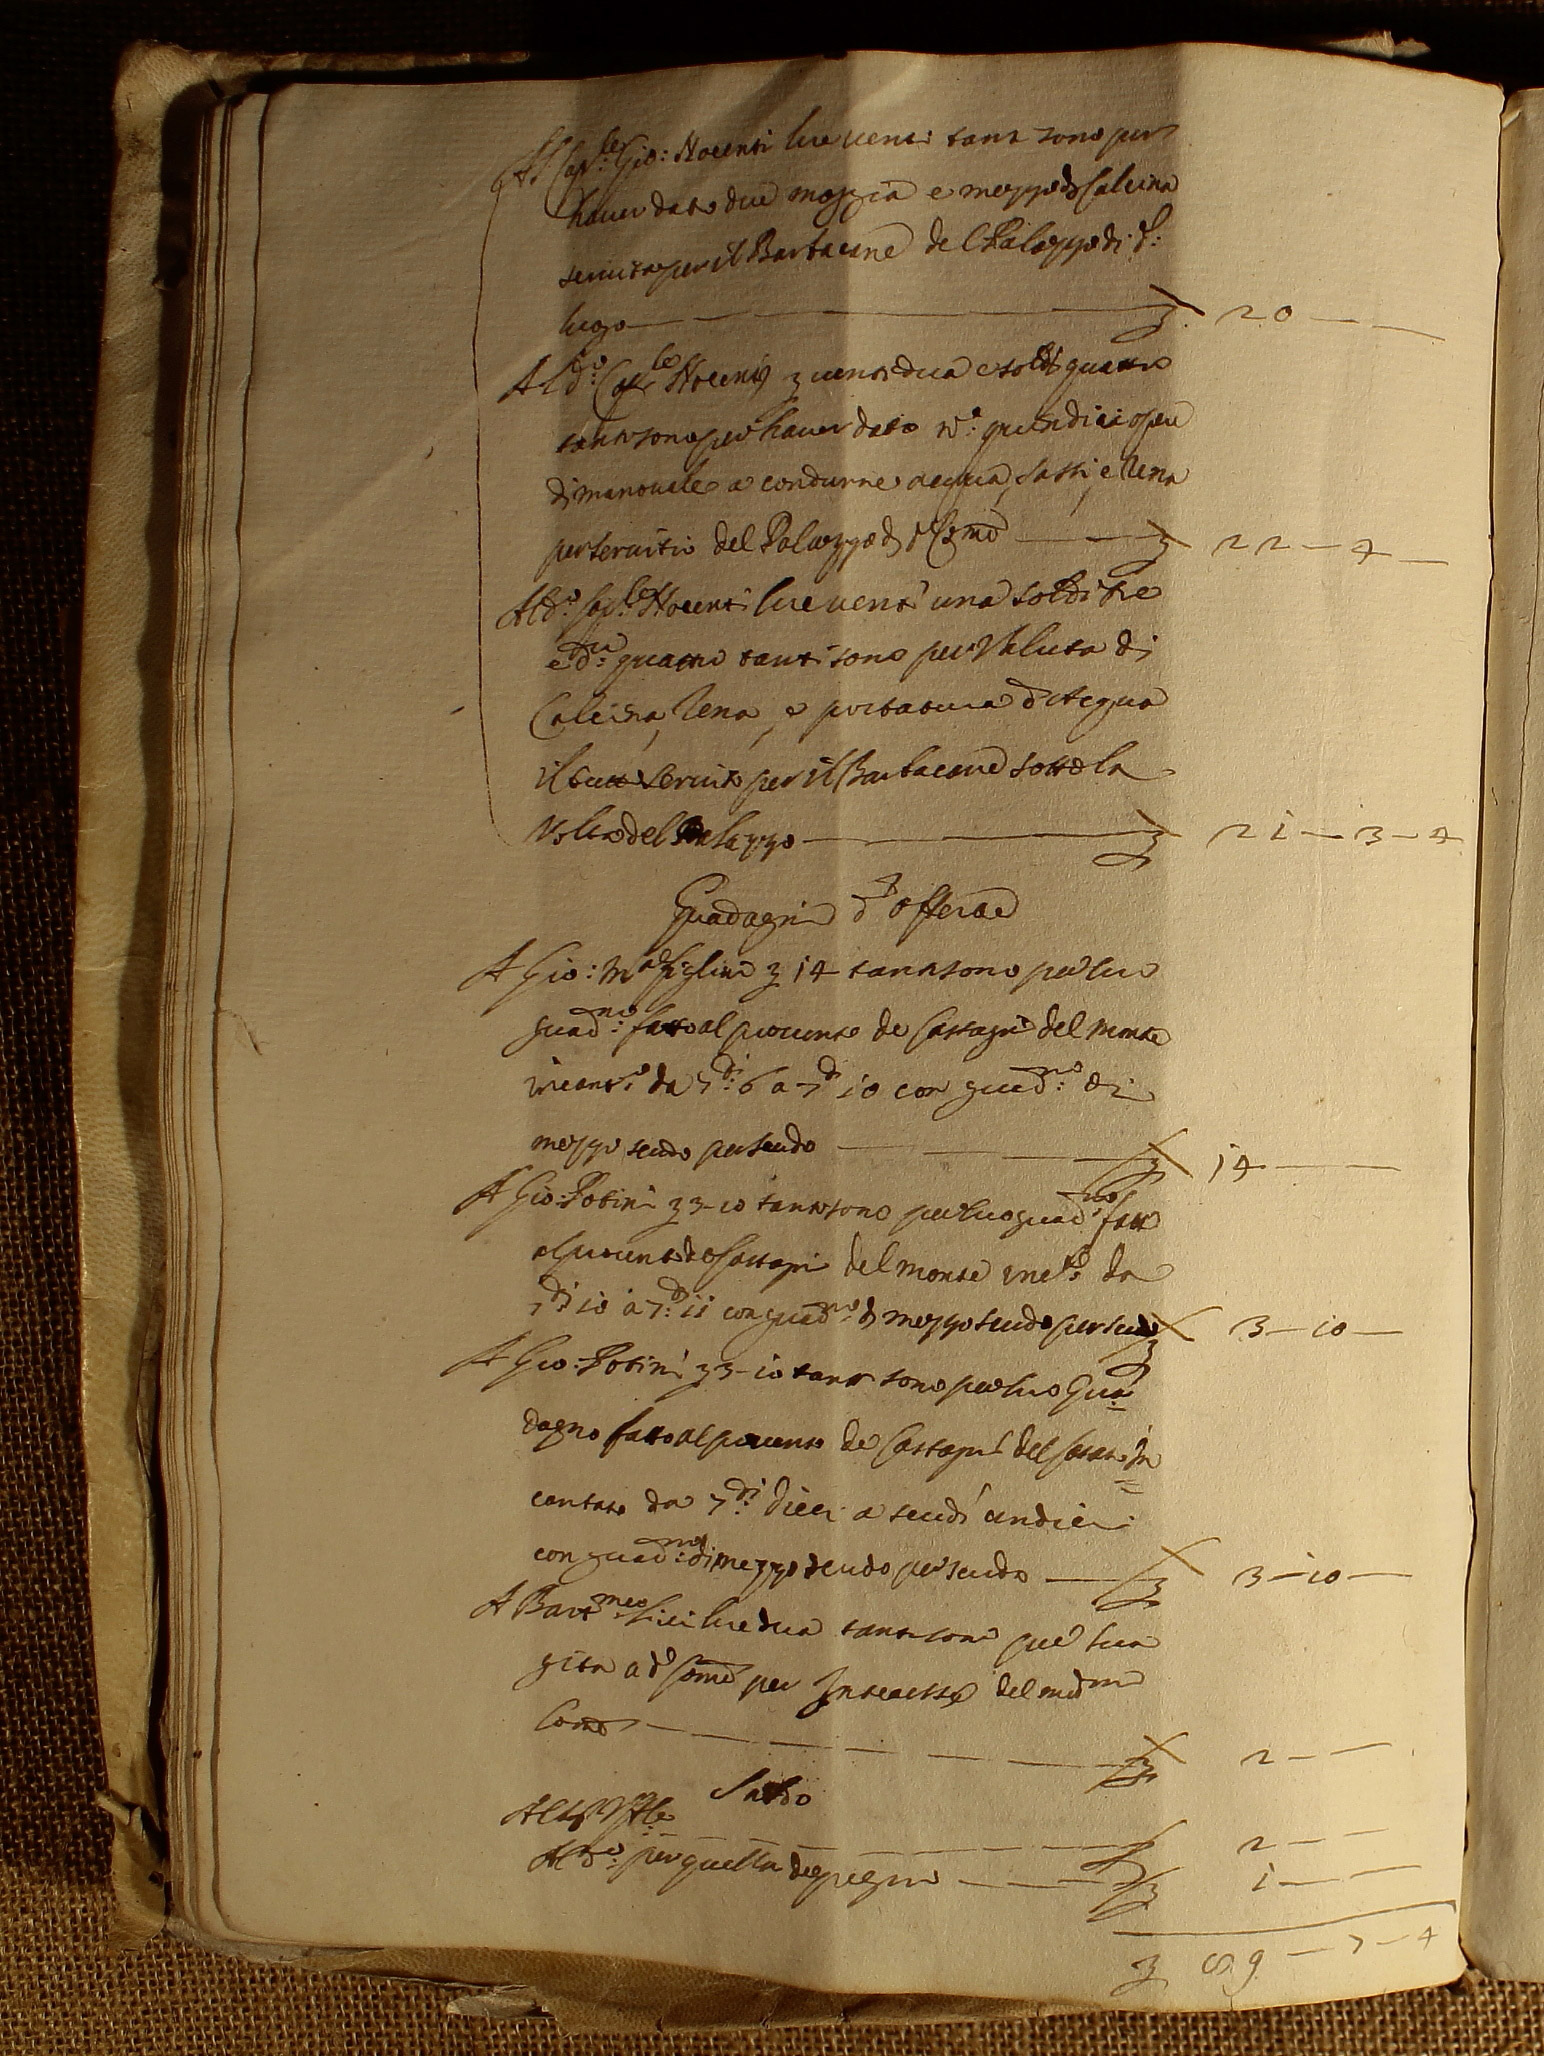 Al Cap:le Gio: Nocenti lire venti tanti sono per
haver dato due moggia e mezzo di Calcina
servita per il Barbacane del Palazzo di d:
luogo ʒ 20 — —
Al d:o Cap:le Nocenti ʒ venti dua e soldi quattro
tanti sono per haver dato n:o quindici opere
di manovale a condurre acqua, sassi, e Rena
per servitio del Palazzo di d:o Com̃o ʒ 22 — 4 —
Al d:o Cap:le Nocenti lire vent'una soldi tre
e d:ri quattro tanti sono per Valuta di
Calcina, Rena, e portatura d'Acqua
il tutto servito per il Barbacane sotto la
Volta del Palazzo ʒ 21 — 3 — 4
Guadagni d' offerte
A Gio: M:a figlini ʒ 14 tanti sono per suo
guad:no fatto al provento de Castagni del monte
incant:o da 7:di 6 a 7:di 10 con guad:no di
mezzo scudo per scudo ʒ 14 — —
A Gio: Potini ʒ 3-10 tanti sono per suo guad:no fatto
al provento de Castagni del monte inc:to da
7:di 10 a 7:di 11 con guad:no di mezzo scudo per scudo ʒ 3 — 10 —
A Gio: Potini ʒ 3-10 tanti sono per suo Gua=
dagno fatto al provento de Castagni del In=
cantato da 7:di dieci a scudi undici
con guad:no di mezzo scudo per scudo ʒ 3 — 10 —
A Bart:meo lire dua tanti sono per sua
gita a d:o Com̃e per Interesse del med:mo
Com̃e ʒ 2 — —
Saldo
ʒ 2 — —
Al d:o per quella de pegni ʒ 1 — —
ʒ 89 — 7 — 4